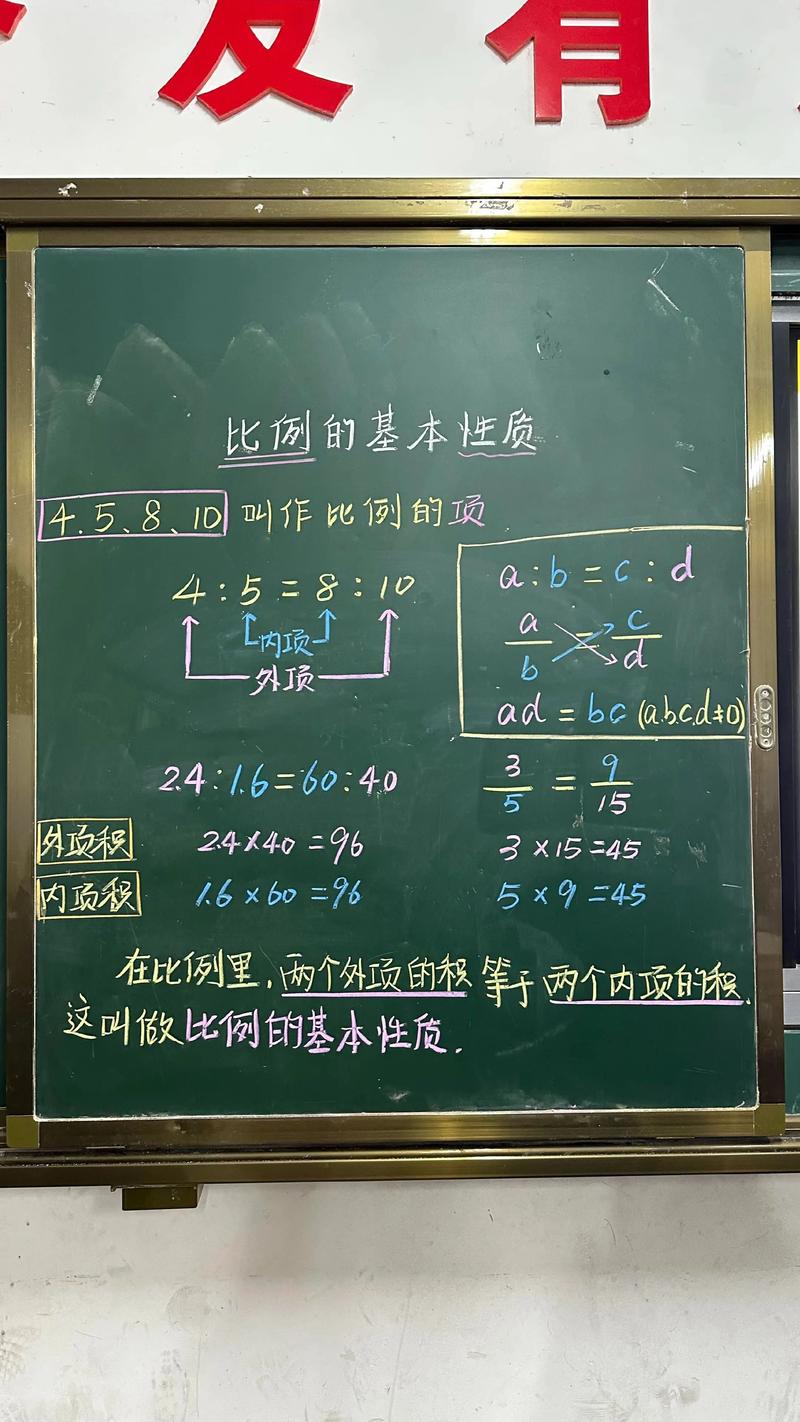 发 有
比例的基本性质
4.5、8、10 叫作比例的项
4:5=8:10
内项
外项
a:b=c:d
a/b = c/d
ad=bc (a.b.c.d≠0)
2.4:1.6=60:40
3/5 = 9/15
外项积 2.4×40=96 3×15=45
内项积 1.6×60=96 5×9=45
在比例里,两个外项的积等于两个内项的积.
这叫做比例的基本性质.